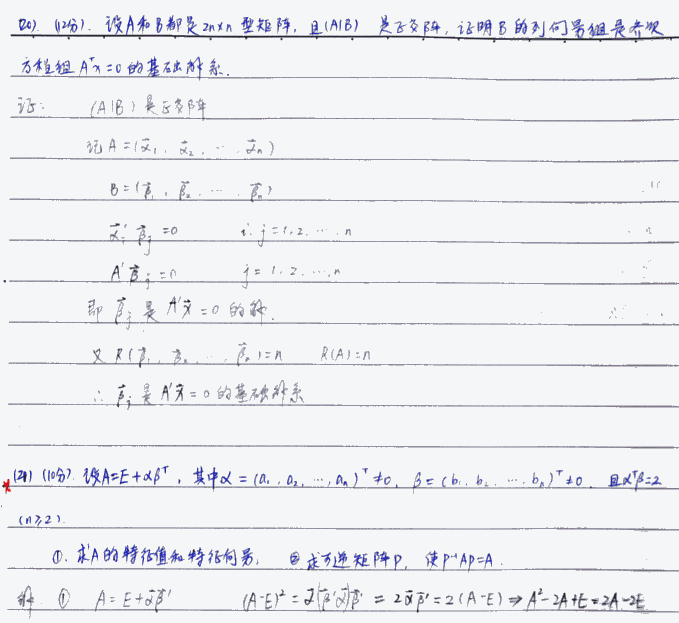 (20). (12分). 设A和B都是2n×n 型矩阵, 且(A|B) 是正交阵, 证明B的列向量组是齐次
方程组 Aᵀx=0 的基础解系.
证: (A|B) 是正交阵
记 A=(α⃗₁, α⃗₂, ⋯ α⃗ₙ)
B=(β⃗₁, β⃗₂, ⋯ β⃗ₙ)
α⃗ᵢ' β⃗ⱼ=0 i, j=1,2, ⋯ n
A'β⃗ⱼ=0 j=1,2, ⋯, n
即 β⃗ⱼ 是 A'x⃗=0 的解.
又 R(β⃗₁, β⃗₂, ⋯, β⃗ₙ)=n R(A)=n
∴ β⃗ⱼ 是 A'x⃗=0 的基础解系
(21) (10分). 设A=E+αβᵀ, 其中α=(a₁, a₂, ⋯, aₙ)ᵀ≠0, β=(b₁, b₂, ⋯, bₙ)ᵀ≠0, 且αᵀβ=2
(n≥2).
①. 求A的特征值和特征向量, ② 求可逆矩阵P, 使P⁻¹AP=Λ.
解. ① A=E+α⃗β⃗' (A-E)²=α⃗(β⃗'α⃗)β⃗'=2α⃗β⃗'=2(A-E)⇒A²-2A+E=2A-2E